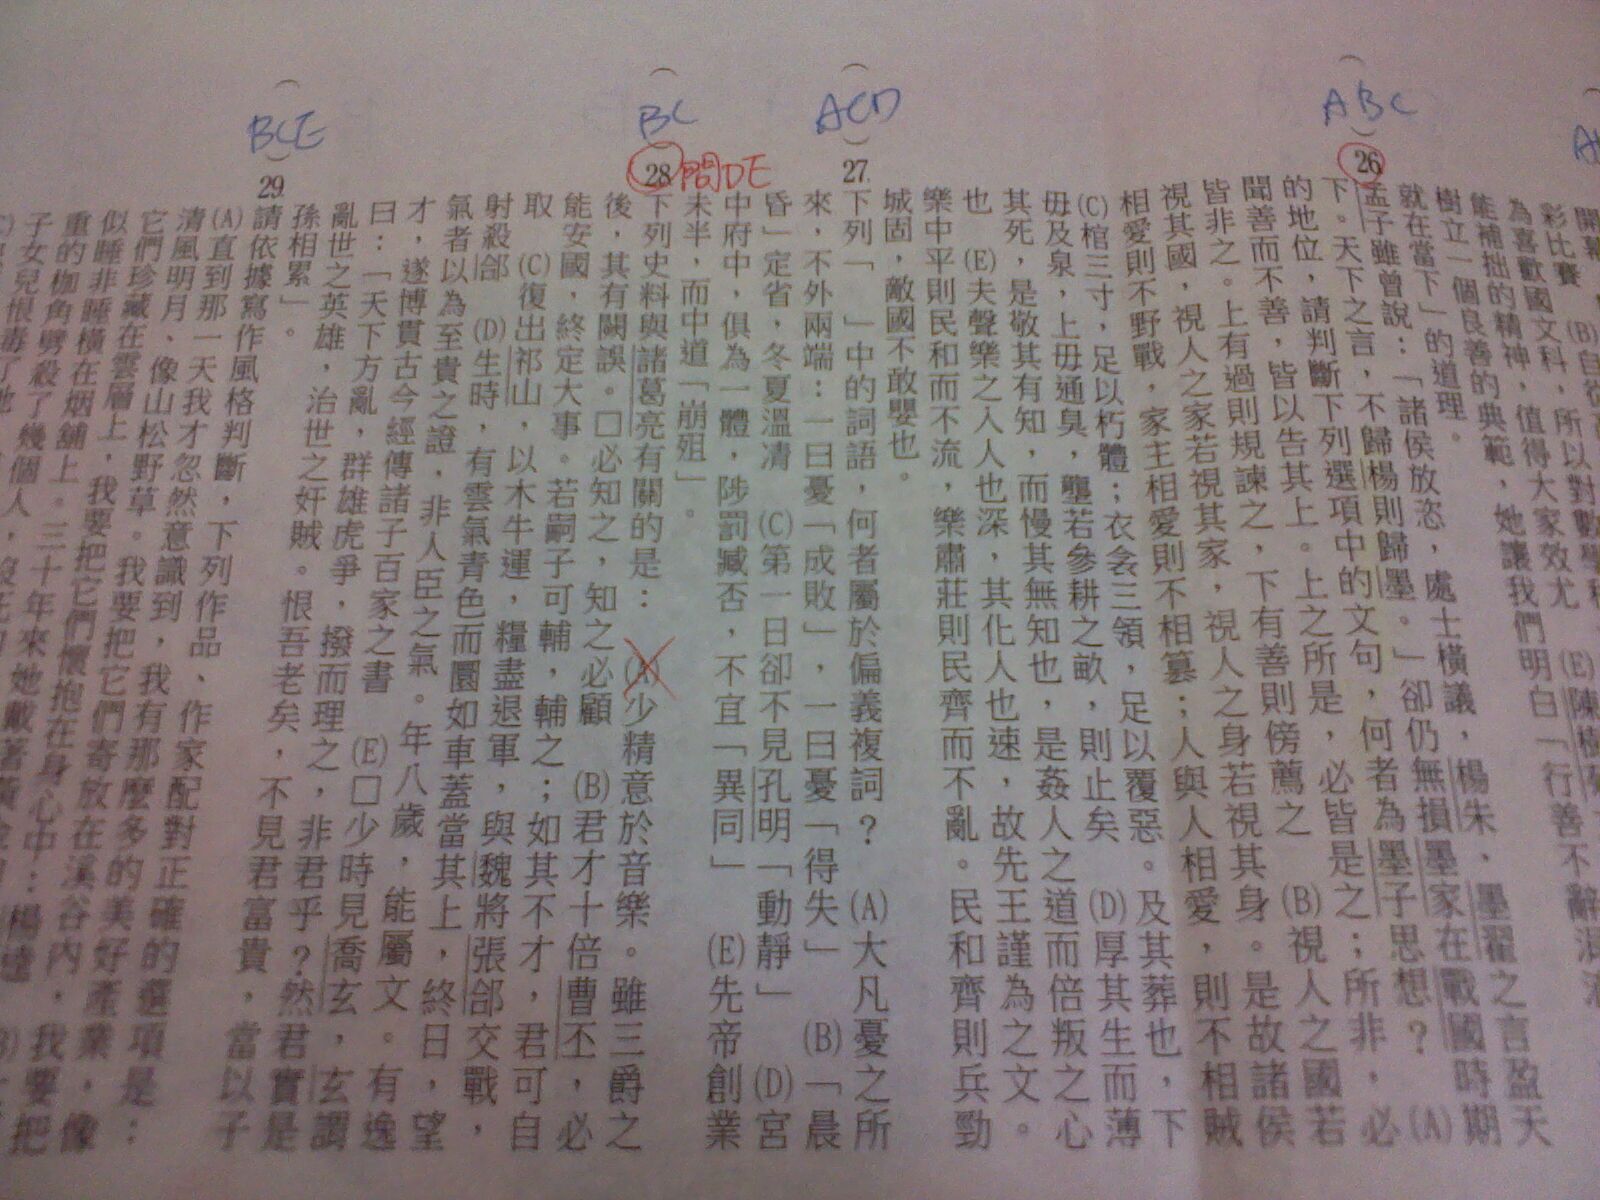 開幕
彩比賽 (B)自從高
為喜歡國文科，所以對數學科
能補拙的精神，值得大家效尤 (E)陳樹菊
樹立一個良善的典範，她讓我們明白「行善不辭涓滴
就在當下」的道理。
ABC
26
孟子雖曾說：「諸侯放恣，處士橫議，楊朱、墨翟之言盈天
下。天下之言，不歸楊則歸墨。」卻仍無損墨家在戰國時期
的地位，請判斷下列選項中的文句，何者為墨子思想？ (A)
聞善而不善，皆以告其上。上之所是，必皆是之；所非，必
皆非之。上有過則規諫之，下有善則傍薦之 (B)視人之國若
視其國，視人之家若視其家，視人之身若視其身。是故諸侯
相愛則不野戰，家主相愛則不相篡；人與人相愛，則不相賊
(C)棺三寸，足以朽體；衣衾三領，足以覆惡。及其葬也，下
毋及泉，上毋通臭，壟若參耕之畝，則止矣 (D)厚其生而薄
其死，是敬其有知，而慢其無知也，是姦人之道而倍叛之心
也 (E)夫聲樂之入人也深，其化人也速，故先王謹為之文。
樂中平則民和而不流，樂肅莊則民齊而不亂。民和齊則兵勁
城固，敵國不敢嬰也。
ACD
27.
下列「 」中的詞語，何者屬於偏義複詞？ (A)大凡憂之所
來，不外兩端：一曰憂「成敗」，一曰憂「得失」 (B)「晨
昏」定省，冬夏溫凊 (C)第一日卻不見孔明「動靜」 (D)宮
中府中，俱為一體，陟罰臧否，不宜「異同」 (E)先帝創業
未半，而中道「崩殂」。
BC
28 問DE
下列史料與諸葛亮有關的是： (A)少精意於音樂。雖三爵之
後，其有闕誤。□必知之，知之必顧 (B)君才十倍曹丕，必
能安國，終定大事。若嗣子可輔，輔之；如其不才，君可自
取 (C)復出祁山，以木牛運，糧盡退軍，與魏將張郃交戰，
射殺郃 (D)生時，有雲氣青色而圜如車蓋當其上，終日，望
氣者以為至貴之證，非人臣之氣。年八歲，能屬文。有逸
才，遂博貫古今經傳諸子百家之書 (E)□少時見喬玄，玄謂
曰：「天下方亂，群雄虎爭，撥而理之，非君乎？然君實是
亂世之英雄，治世之奸賊。恨吾老矣，不見君富貴，當以子
孫相累」。
BCE
29.
請依據寫作風格判斷，下列作品、作家配對正確的選項是：
(A)直到那一天我才忽然意識到，我有那麼多的美好產業，像
清風明月、像山松野草。我要把它們寄放在溪谷內，我要把
它們珍藏在雲層上，我要把它們懷抱在身心中：楊逵 (B)
似睡非睡橫在烟舖上。三十年來她戴著黃金的
重的枷角劈殺了幾個人，沒死的
子女兒恨毒了她